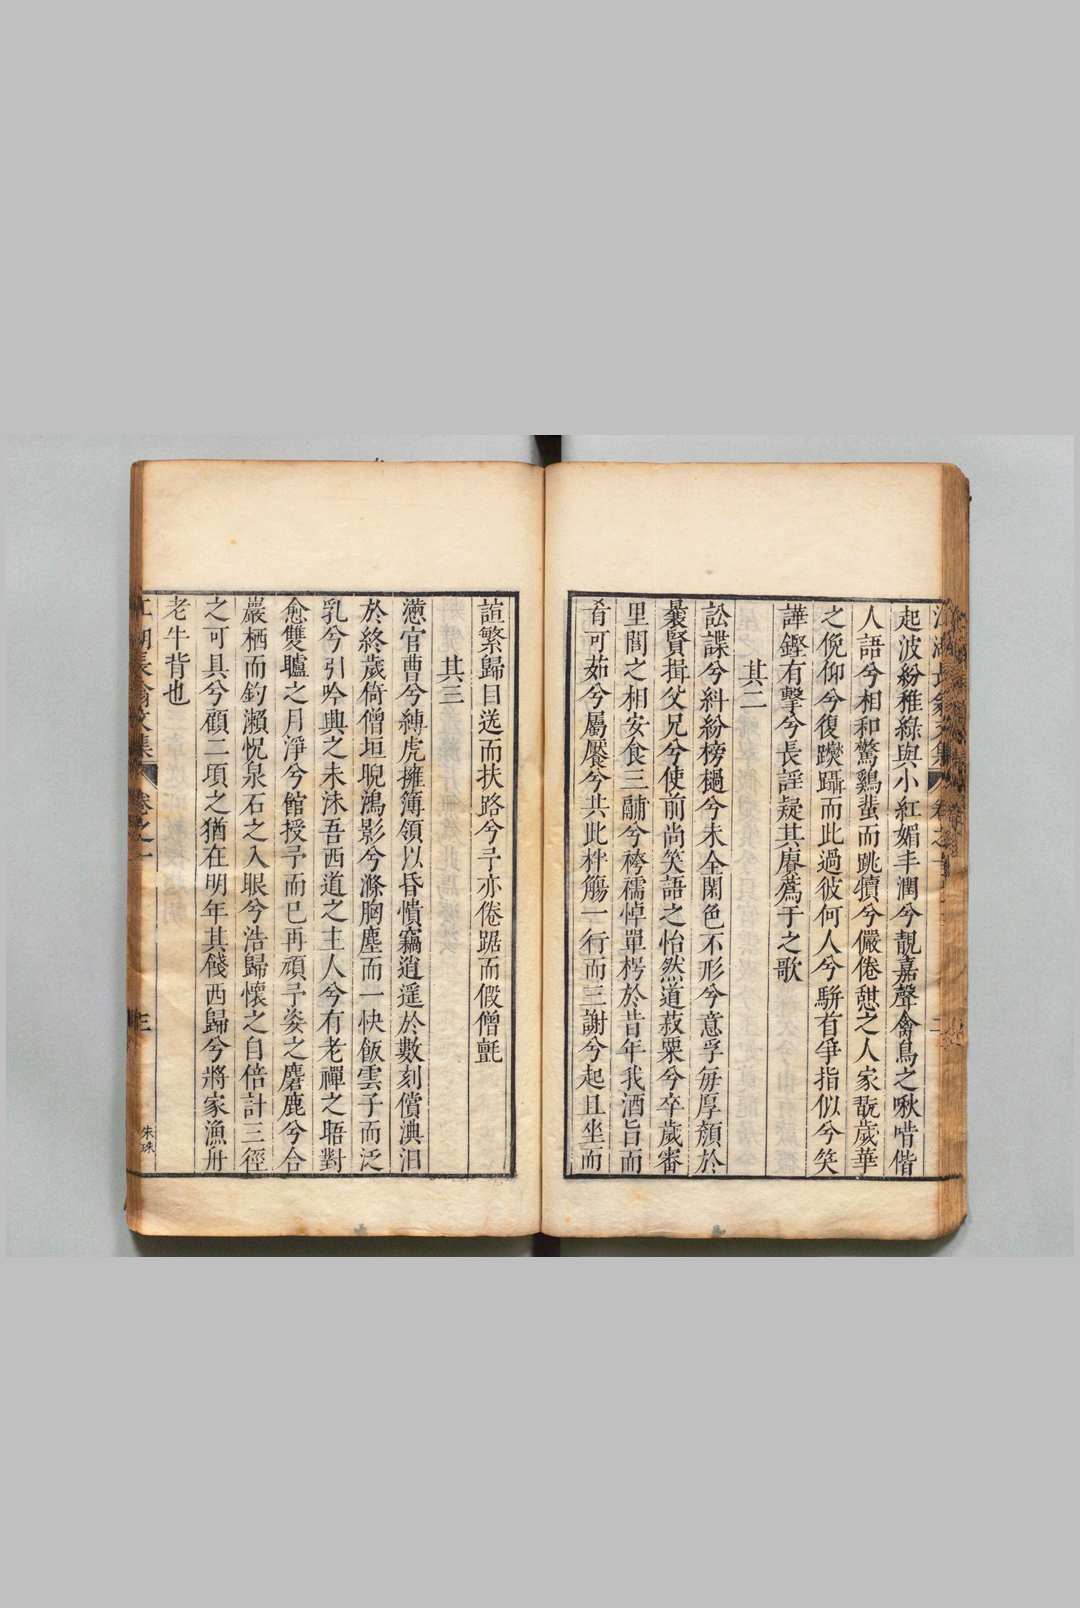 起波紛稚綠與小紅媚丰潤兮靚嘉聲禽鳥之啾唶偕
人語兮相和驚鷄蜚而跳犢兮儼倦憇之人家翫歲華
之俛仰兮復躨躡而此過彼何人兮駢首爭指似兮笑
譁鏗有擊兮長謡疑其賡蔿于之歌
其二
訟諜兮糾紛榜檛兮未全閑色不形兮意孚每厚顏於
曩賢揖父兄兮使前尚笑語之怡然道菽粟兮卒歲審
里閭之相安食三鬴兮袴襦悼單枵於昔年我酒旨而
肴可茹兮屬厭兮共此柈觴一行而三謝兮起且坐而
諠繁歸目送而扶路兮予亦倦踞而假僧氈
其三
懑官曹兮縛虎擁簿領以昏憒竊逍遥於數刻償淟汩
於終歲倚僧垣睨鴻影兮滌胸塵而一快飯雲子而泛
乳兮引吟興之未沬吾西道之主人兮有老禪之晤對
愈雙矑之月淨兮館授予而已再頑予姿之麏鹿兮合
巖栖而釣瀨怳泉石之入眼兮浩歸懷之自倍計三徑
之可具兮顧二頃之猶在明年其餞西歸兮將家漁舟
老牛背也
江湖長翁文集 卷之一
三
朱珠